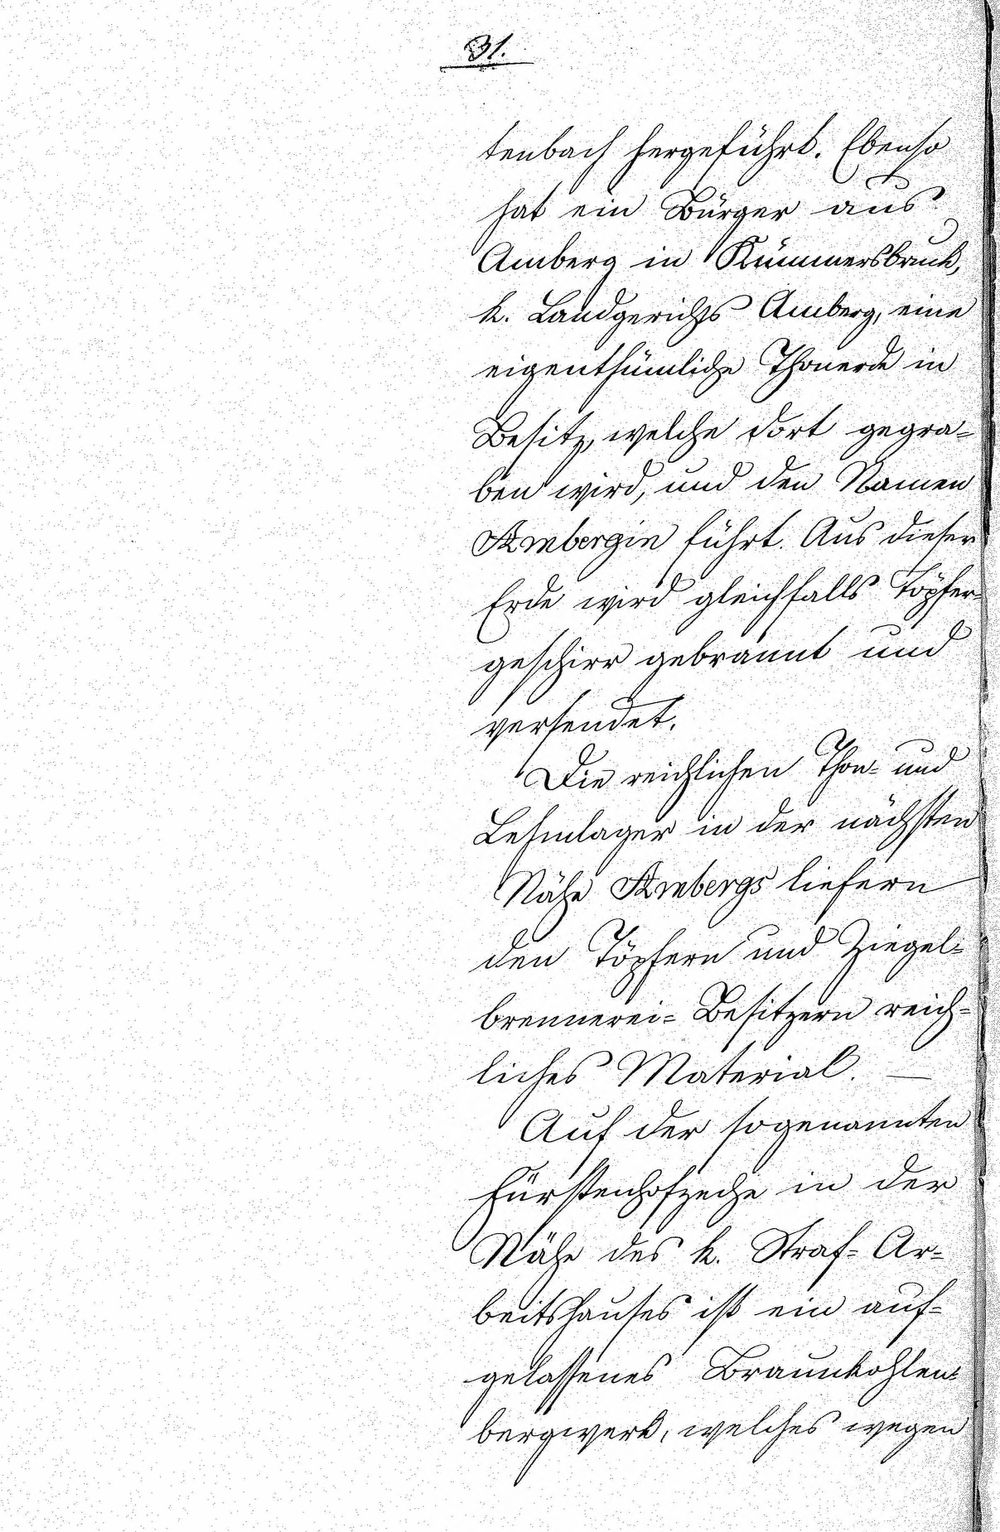 31.
tenbach hergeführt. Ebenso
hat ein Bürger aus
Amberg in Kümmersbruck,
k. Landgerichts Amberg, eine
eigenthümliche Thonerde in
Besitz, welche dort gegra=
ben wird, und den Namen
Ambergin führt. Aus dieser
Erde wird gleichfalls Töpfer=
geschirr gebrannt und
versendet.
Die reichlichen Thon= und
Lehmlager in der nächsten
Nähe Ambergs liefern
den Töpfern und Ziegel=
brennerei= Besitzern reich=
liches Material. —
Auf der sogenannten
Fürstenhofzeche in der
Nähe des k. Straf= Ar=
beitshauses ist ein auf=
gelassenes Braunkohlen=
bergwerk, welches wegen